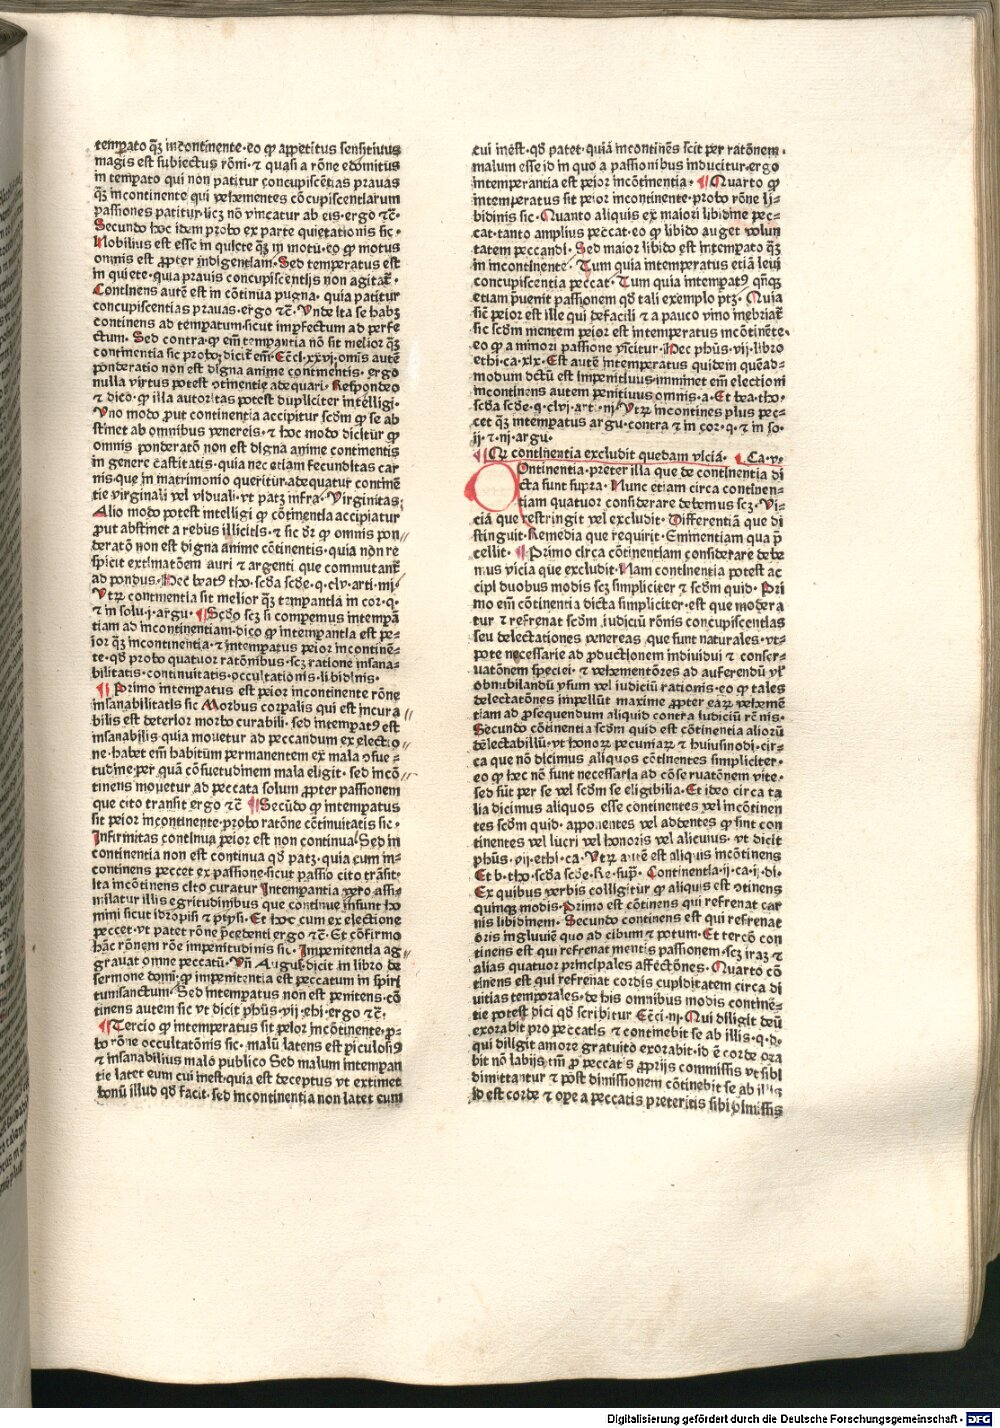 tempato qꝫ incontinente·eo ꝙ appetitus sensitiuus
magis est subiectus rōni·⁊ quasi a rōne edomitus
in temꝑato qui non patitur concupiscētias prauas
qꝫ incontinente qui vehementes cōcupiscentiarum
passiones patitur·licꝫ nō vincatur ab eis·ergo ⁊c̄·
Secundo hoc idem probo ex parte quietationis sic·
Nobilius est esse in quiete qꝫ in motu·eo ꝙ motus
omnis est ꝓpter indigentiam·Sed temperatus est
in quiete·quia prauis concupiscentijs non agitat᷑·
Continens autē est in cōtinua pugna·quia patitur
concupiscentias prauas·ergo ⁊c̄·Vnde ita se habꝫ
continens ad tempatum·sicut imꝑfectum ad perfe
ctum·Sed contra·ꝙ em̄ temꝑantia nō sit melior qꝫ
continentia sic probo·dicit᷑ em̄·Ecc̄i·xxvi·omīs autē
ponderatio non est digna anime continentis·ergo
nulla virtus potest ↄtinentie adequari·Respondeo
⁊ dico·ꝙ illa autoritas potest dupliciter intelligi·
Vno modo ꝓut continentia accipitur scd̄m ꝙ se ab
stinet ab omnibus venereis·⁊ hoc modo dicitur ꝙ
omnis ponderatō non est digna anime continentis
in genere castitatis·quia nec etiam fecunditas car
nis·que in matrimonio queritur·adequatur continē
tie virginali vel viduali·vt patꝫ infra·Virginitas
Alio modo potest intelligi ꝙ cōtinentia accipiatur
ꝓut abstinet a rebus illicitis·⁊ sic dr̄ ꝙ omnis pon
deratō non est digna anime cōtinentis·quia non re
spicit extimatōem auri ⁊ argenti que commutant᷑
ad pondus·Hec beatꝰ tho·scd̄a scd̄e·q·clv·arti·iiij·
Vtrꝫ continentia sit melior qꝫ tempantia in cor·q·
⁊ in solu·j·argu·¶Scd̄o scꝫ si compemus intempā
tiam ad incontinentiam·dico ꝙ intempantia est pe-
ior qꝫ incontinentia·⁊ intempatus peior incontinē-
te·qd̄ probo quatuor ratōnibus·scꝫ ratione insana-
bilitatis·continuitatis·occultationis·libidinis·
¶Primo intempatus est peior incontinente rōne
insanabilitatis sic·Morbus corꝑalis qui est incura
bilis est deterior morbo curabili·sed intempatꝰ est
insanabilis quia mouetur ad peccandum ex electio
ne·habet em̄ habitum permanentem ex mala ↄsue-
tudine·per quā cōsuetudinem mala eligit·sed incō
tinens mouetur ad peccata solum ꝓpter passionem
que cito transit ergo ⁊c̄ ¶Secūdo ꝙ intempatus
sit peior incontinente·probo ratōne cōtinuitatis sic·
Infirmitas continua peior est non continua·Sed in
continentia non est continua qd̄ patꝫ·quia cum in-
continens peccet ex passione·sicut passio cito trāsit·
ita incōtinens cito curatur Intempantia vero assi-
milatur illis egritudinibus que continue insunt ho
mini sicut idropisi ⁊ ptysi·Et hoc cum ex electione
peccet·vt patet rōne p̄cedenti ergo ⁊c̄·Et cōfirmo
hāc rōnem rōe impenitudinis sic·Impenitentia ag
grauat omne peccatū·Vn̄ Augus·dicit in libro de
sermone domi·ꝙ impenitentia est peccatum in spiri
tumsanctum·Sed intempatus non est penitens·cō
tinens autem sic vt dicit ph̄us·vij·ethi·ergo ⁊c̄·
¶Tercio ꝙ intemperatus sit peior incōtinente·ꝓ-
bo rōne occultatōnis sic·malū latens est ꝑiculosiꝰ
⁊ insanabilius malo publico Sed malum intempan
tie latet eum cui inest·quia est deceptus vt extimet
bonū illud qd̄ facit·sed incontinentia non latet eum
cui inest·qd̄ patet·quia incontinēs scit per ratōnem
malum esse id in quo a passionibus inducitur·ergo
intemperantia est peior incōtinentia·¶Quarto ꝙ
intemperatus sit peior incontinente·probo rōne li-
bidinis sic·Quanto aliquis ex maiori libidine pec-
cat·tanto amplius peccat·eo ꝙ libido auget volun
tatem peccandi·Sed maior libido est intempato qꝫ
in incontinente·Tum quia intemperatus etiā leui
concupiscentia peccat·Tum quia intempatꝰ qn̄qꝫ
etiam p̄uenit passionem qd̄ tali exemplo ptꝫ·Quia
sic̄ peior est ille qui de facili ⁊ a pauco vino inebriat᷑
sic scd̄m mentem peior est intemperatus incōtinēte·
eo ꝙ a minori passione vīcitur·Hec ph̄us·vij·libro
ethi·ca·xix·Est autē intemperatus quidem quēad-
modum dctū est impenitiuus·imminet em̄ electioni
incontinens autem penitiuus omnis·a·Et bea·tho·
scd̄a scd̄e·q·clvi·art·iij·Vtrꝫ incontinēs plus pec-
cet qꝫ intempatus argu·contra ⁊ in cor·q·⁊ in so-
ij·⁊·iij·argu·
¶Qꝫ continentia excludit quedam vicia· Ca·v·
Ontinentia·preter illa que de continentia di
cta sunt supra·Nunc etiam circa continen-
tiam quatuor considerare debemus scꝫ·Vi-
cia que restringit vel excludit·Differentiam que di
stinguit·Remedia que requirit·Eminentiam qua p̄
cellit·¶Primo circa cōtinentiam considerare debe
mus vicia que excludit·Nam continentia potest ac
cipi duobus modis scꝫ simpliciter ⁊ scd̄m quid·Pri
mo em̄ cōtinentia dicta simpliciter·est que modera
tur ⁊ refrenat scd̄m iudiciū rōnis concupiscentias
seu delectationes venereas·que sunt naturales·vt-
pote necessarie ad ꝓductionem indiuidui ⁊ conser-
uatōnem speciei·⁊ vehementōres ad auferendū vl̓
obnubilandū vsum vel iudiciū rationis·eo ꝙ tales
delectatōnes impellūt maxime ꝓpter earꝫ vehemē
tiam ad ꝓsequendum aliquid contra iudiciū rōnis·
Secundo cōtinentia scd̄m quid est cōtinentia aliorū
delectabiliū·vt honorꝫ pecuniarꝫ ⁊ huiusmodi·cir-
ca que nō dicimus aliquos cōtinentes simpliciter·
eo ꝙ hec nō sunt necessaria ad cōseruatōnem vite·
sed sūt per se vel scd̄m se eligibilia·Et ideo circa ta
lia dicimus aliquos esse continentes vel incōtinen
tes scd̄m quid·apponentes vel addentes ꝙ sint con
tinentes vel lucri vel honoris vel alicuius·vt dicit
ph̄us·vij·ethi·ca·Vtrꝫ autē est aliquis incōtinens
Et b·tho·scd̄a scd̄e·Re·sup̄·Continentia·ij·ca·i·di·
Ex quibus verbis colligitur ꝙ aliquis est ↄtinens
quinqꝫ modis·Primo est cōtinens qui refrenat car
nis libidinem·Secundo continens est qui refrenat
oris ingluuiē quo ad cibum ⁊ potum·Et tercō con
tinens est qui refrenat mentis passionem·scꝫ irāꝫ ⁊
alias quatuor principales affectōnes·Quarto cō
tinens est qui refrenat cordis cupiditatem circa di
uitias temporales·de his omnibus modis continē-
tie potest dici qd̄ scribitur Ecc̄i·iij·Qui diligit deū
exorabit pro peccatis ⁊ continebit se ab illis·q·d·
qui diligit amore gratuito exorabit·id ē corde ora
bit nō labijs tm̄ ꝓ peccatis ꝓprijs commissis vt sibi
dimittantur ⁊ post dimissionem cōtinebit se ab illis
id est corde ⁊ ope a peccatis preteritis sibi dimissis
Digitalisierung gefördert durch die Deutsche Forschungsgemeinschaft - DFG